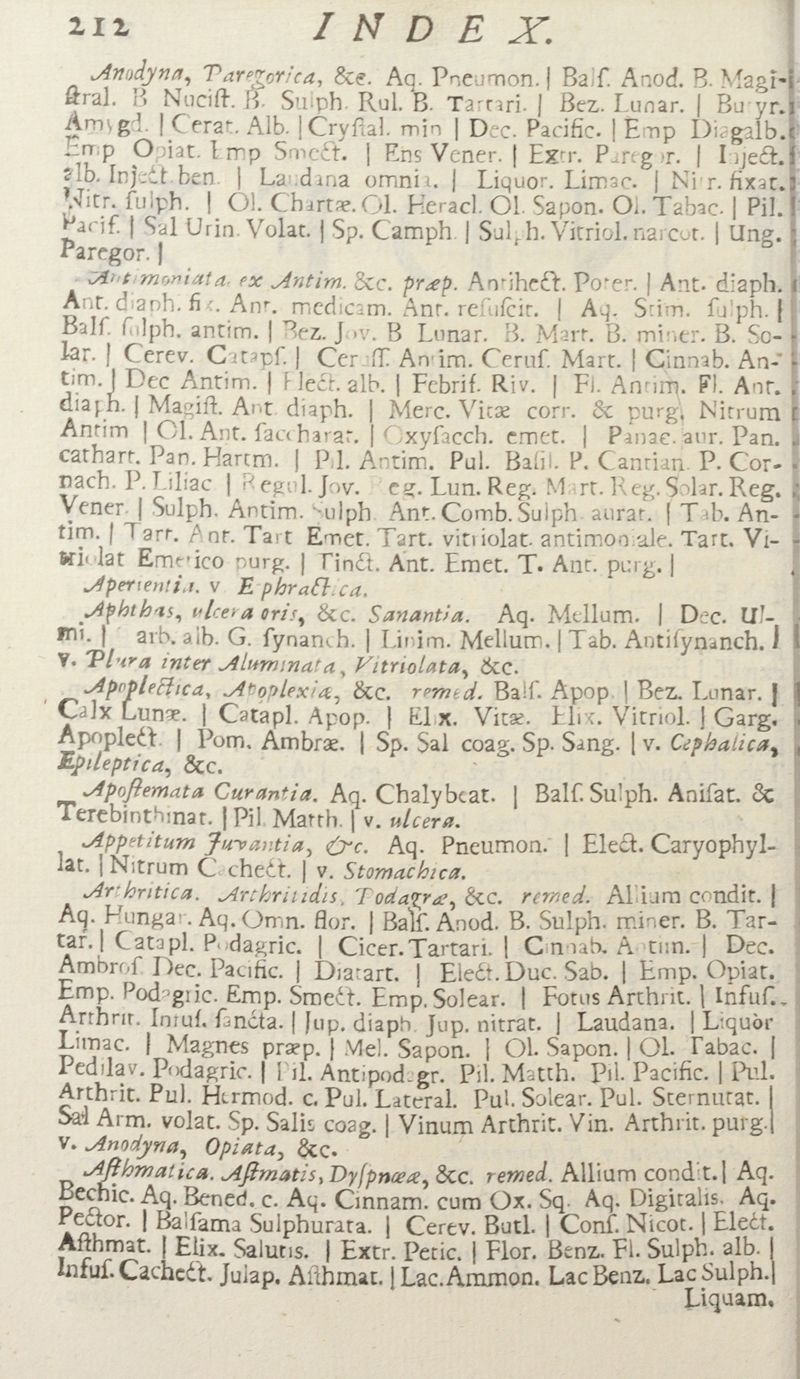 212 INDEX.
Anodyna, Paregorica, &c. Aq. Pneumon. | Balf. Anod. B. Magi-
ſtral. B Nuciſt. B. Sulph. Rul. B. Tartari. | Bez. Lunar. | Butyr.
Amygd. | Cerat. Alb. | Cryſtal. min | Dec. Pacific. | Emp Diagalb.
Emp Opiat. Emp Smect. | Ens Vener. | Extr. Paregor. | Inject.
alb. Inject. ben. | Laudana omnia. | Liquor. Limac. | Nitr. fixat.
Nitr. ſulph. | Ol. Chartæ. Ol. Heracl. Ol. Sapon. Ol. Tabac. | Pil.
Pacif. | Sal Urin. Volat. | Sp. Camph. | Sulph. Vitriol. narcot. | Ung.
Paregor. |
Antimoniata. ex Antim. &c. præp. Antihect. Poter. | Ant. diaph.
Ant. diaph. fix. Ant. medicam. Ant. reſuſcit. | Aq. Stim. ſulph. |
Balſ. ſulph. antim. | Bez. Jov. B Lunar. B. Mart. B. miner. B. So-
lar. | Cerev. Catapſ. | Ceruſſ. Antim. Ceruſ. Mart. | Cinnab. An-
tim. | Dec Antim. | Elect. alb. | Febrif. Riv. | Fl. Antim. Fl. Ant.
diaph. | Magiſt. Ant. diaph. | Merc. Vitæ corr. & purg. Nitrum
Antim | Ol. Ant. ſaccharat. | Oxyſacch. emet. | Panac. aur. Pan.
cathart. Pan. Hartm. | Pil. Antim. Pul. Baſil. P. Cantian. P. Cor-
nach. P. Liliac | Regul. Jov. Reg. Lun. Reg. Mart. Reg. Solar. Reg.
Vener. | Sulph. Antim. Sulph. Ant. Comb. Sulph. aurat. | Tab. An-
tim. | Tart. Ant. Tart Emet. Tart. vitriolat. antimoniale. Tart. Vi-
triolat Emetico purg. | Tinct. Ant. Emet. T. Ant. purg. |
Aperientia. v Ephractica.
Aphthas, ulcera oris, &c. Sanantia. Aq. Mellum. | Dec. Ul-
mi. | arb. alb. G. ſynanch. | Linim. Mellum. | Tab. Antiſynanch. |
v. Plura inter Aluminata, Vitriolata, &c.
Apoplectica, Apoplexiæ, &c. remed. Balſ. Apop. | Bez. Lunar. |
Calx Lunæ. | Catapl. Apop. | Elix. Vitæ. Elix. Vitriol. | Garg.
Apoplect. | Pom. Ambræ. | Sp. Sal coag. Sp. Sang. | v. Cephalica,
Epileptica, &c.
Apoſtemata Curantia. Aq. Chalybeat. | Balſ. Sulph. Aniſat. &
Terebinthinat. | Pil. Matth. | v. ulcera.
Appetitum Juvantia, &c. Aq. Pneumon. | Elect. Caryophyl-
lat. | Nitrum Cachect. | v. Stomachica.
Arthritica. Arthritidis, Podagræ, &c. remed. Allium condit. |
Aq. Hungar. Aq. Omn. flor. | Balſ. Anod. B. Sulph. miner. B. Tar-
tar. | Catapl. Podagric. | Cicer. Tartari. | Cinnab. Antim. | Dec.
Ambroſ. Dec. Pacific. | Diatart. | Elect. Duc. Sab. | Emp. Opiat.
Emp. Podagric. Emp. Smect. Emp. Solear. | Fotus Arthrit. | Infuſ.
Arthrit. Infuſ. ſancta. | Jup. diaph. Jup. nitrat. | Laudana. | Liquor
Limac. | Magnes præp. | Mel. Sapon. | Ol. Sapon. | Ol. Tabac. |
Pedilav. Podagric. | Pil. Antipodagr. Pil. Matth. Pil. Pacific. | Pul.
Arthrit. Pul. Hermod. c. Pul. Lateral. Pul. Solear. Pul. Sternutat. |
Sal Arm. volat. Sp. Salis coag. | Vinum Arthrit. Vin. Arthrit. purg. |
v. Anodyna, Opiata, &c.
Aſthmatica. Aſtmatis, Dyſpnœæ, &c. remed. Allium condit. | Aq.
Bechic. Aq. Bened. c. Aq. Cinnam. cum Ox. Sq. Aq. Digitalis. Aq.
Pector. | Balſama Sulphurata. | Cerev. Butl. | Conſ. Nicot. | Elect.
Aſthmat. | Elix. Salutis. | Extr. Petic. | Flor. Benz. Fl. Sulph. alb. |
Infuſ. Cachect. Julap. Aſthmat. | Lac. Ammon. Lac Benz. Lac Sulph. |
Liquam.